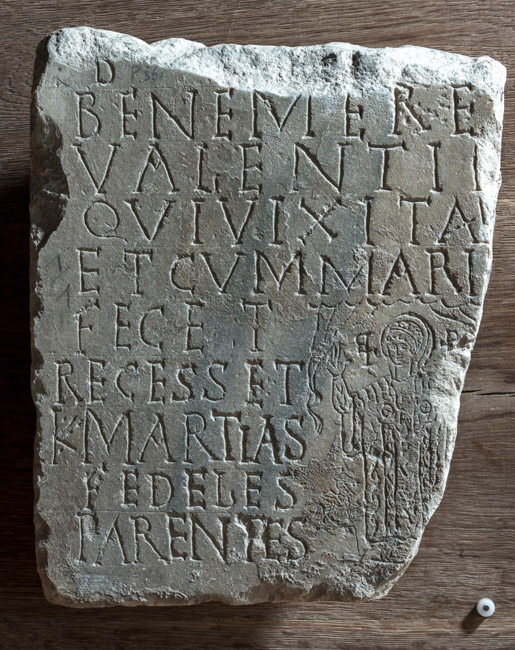 D
P.361
BENEMERE
VALENTI
QVIVIXITA
ETCVMMARI
FECET
RECESSET
K MARTIAS
FEDELES
PARENTES